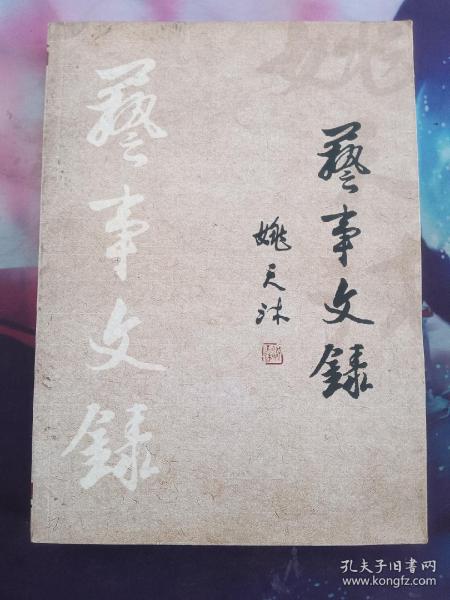 藝事文錄
姚天沐
藝事文錄
孔夫子旧书网
www.kongfz.com